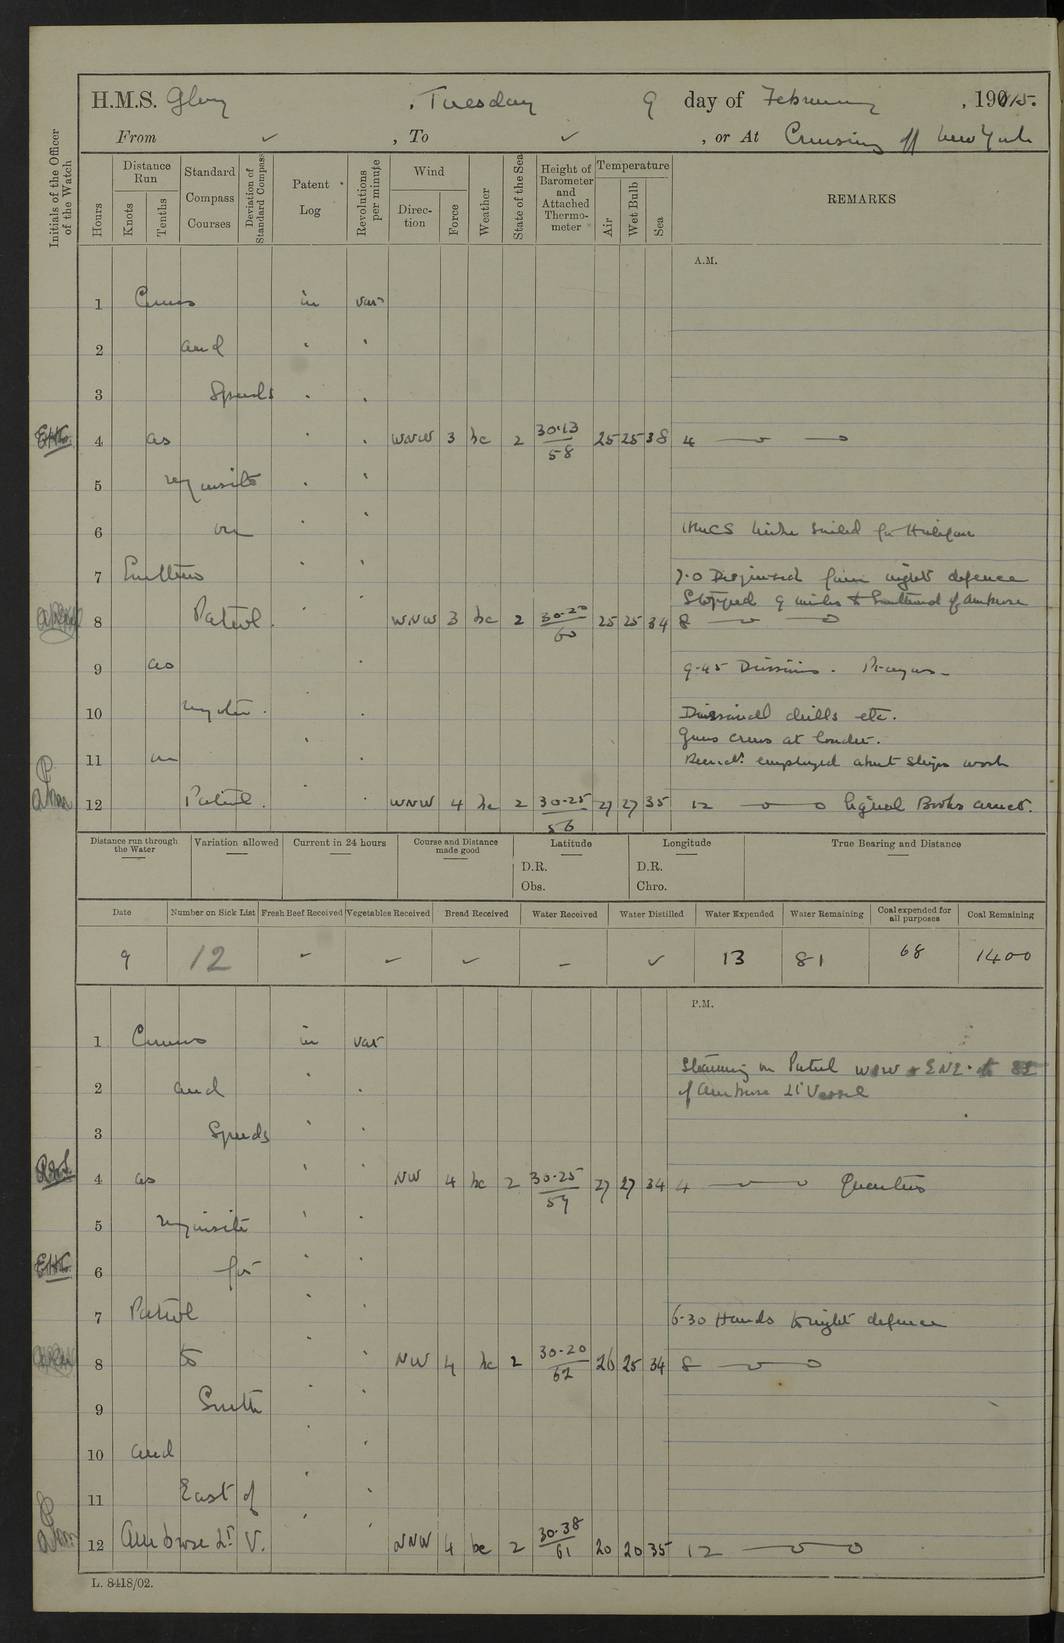 H.M.S. Glory , Tuesday 9 day of February , 1915.
From ✓ , To ✓ , or At Cruising off New York
Initials of the Officer of the Watch
Hours
Distance Run
Knots
Tenths
Standard Compass Courses
Deviation of Standard Compass
Patent Log
Revolutions per minute
Wind
Direction
Force
Weather
State of the Sea
Height of Barometer and Attached Thermometer
Temperature
Air
Wet Bulb
Sea
REMARKS
A.M.
1 Courses in var
2 and
3 Speeds
4 as WNW 3 bc 2 30.13/58 25 25 38 4
5 requisite
6 on HMCS sailed for Halifax
7 Southern 7.0 Disguised from night defence
Stopped 9 miles to Southward of Ambrose
8 Patrol. WNW 3 bc 2 30.20/60 25 25 34 8
9 as 9.45 Divisions. Prayers
10 requisite. Divisional drills etc.
Guns crews at loader.
11 on employed about Ships work
12 Patrol. WNW 4 bc 2 30.25/56 27 27 35 12 Signal Books correct.
Distance run through the Water
Variation allowed
Current in 24 hours
Course and Distance made good
Latitude
D.R.
Obs.
Longitude
D.R.
Chro.
True Bearing and Distance
Date Number on Sick List Fresh Beef Received Vegetables Received Bread Received Water Received Water Distilled Water Expended Water Remaining Coal expended for all purposes Coal Remaining
9 12 - - - - ✓ 13 81 68 1400
P.M.
1 Courses in var
Steaming on Patrol WSW & ENE
2 and of Ambrose Lt Vessel
3 Speeds
4 as NW 4 bc 2 30.25/59 27 27 34 4 Quarters
5 requisite
6 for
7 Patrol 6.30 Hands to night defence
8 to NW 4 bc 2 30.20/62 26 25 34 8
9 South
10 and
11 East of
12 Ambrose Lt V. NNW 4 bc 2 30.38/61 20 20 35 12
L. 8418/02.